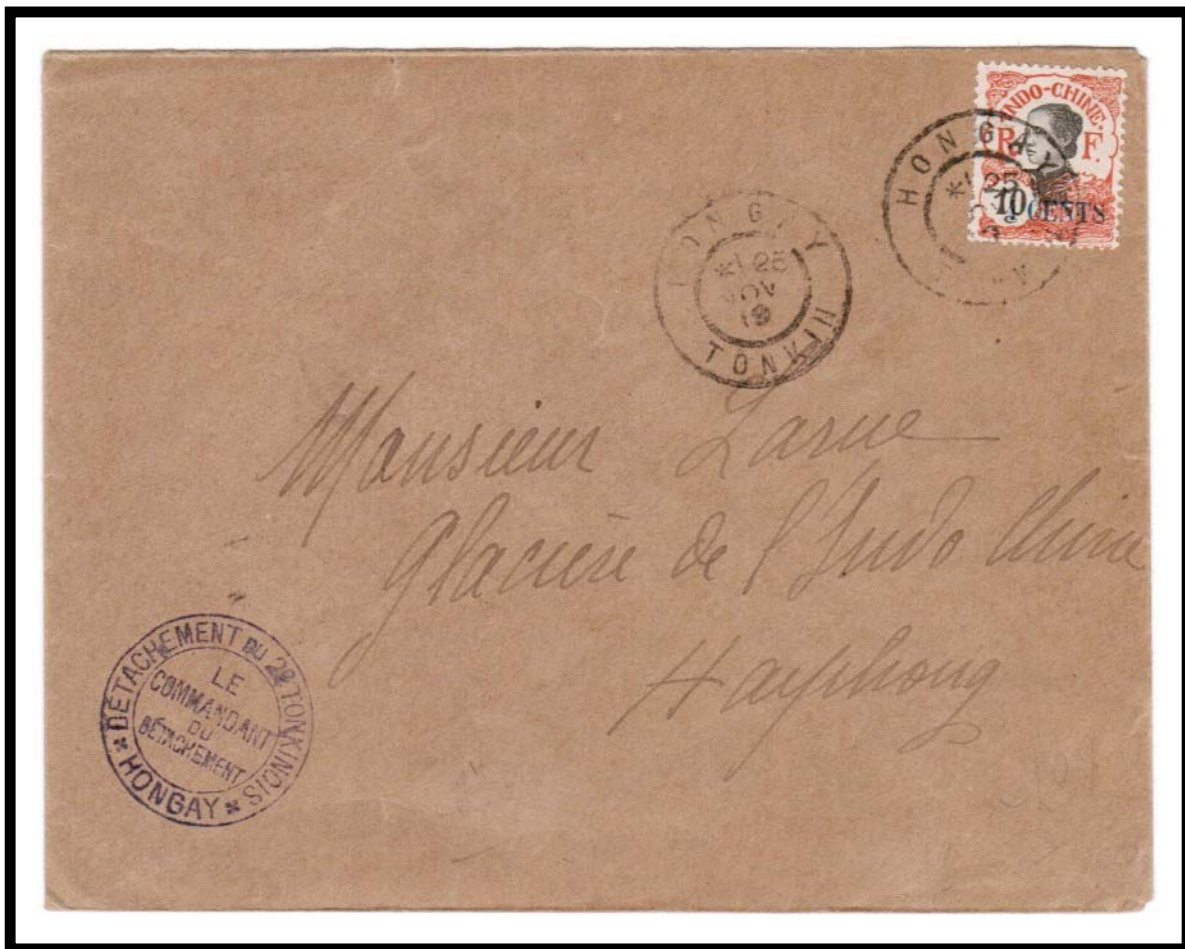 INDO-CHINE.
R. F.
10 CENTS
HONGAY
25
HONGAY
25
NOV
19
TONKIN
Monsieur Larue
Glacière de l'Indo Chine
Hayphong
DÉTACHEMENT DU 2e TONKINOIS
LE
COMMANDANT
DU
DÉTACHEMENT
HONGAY